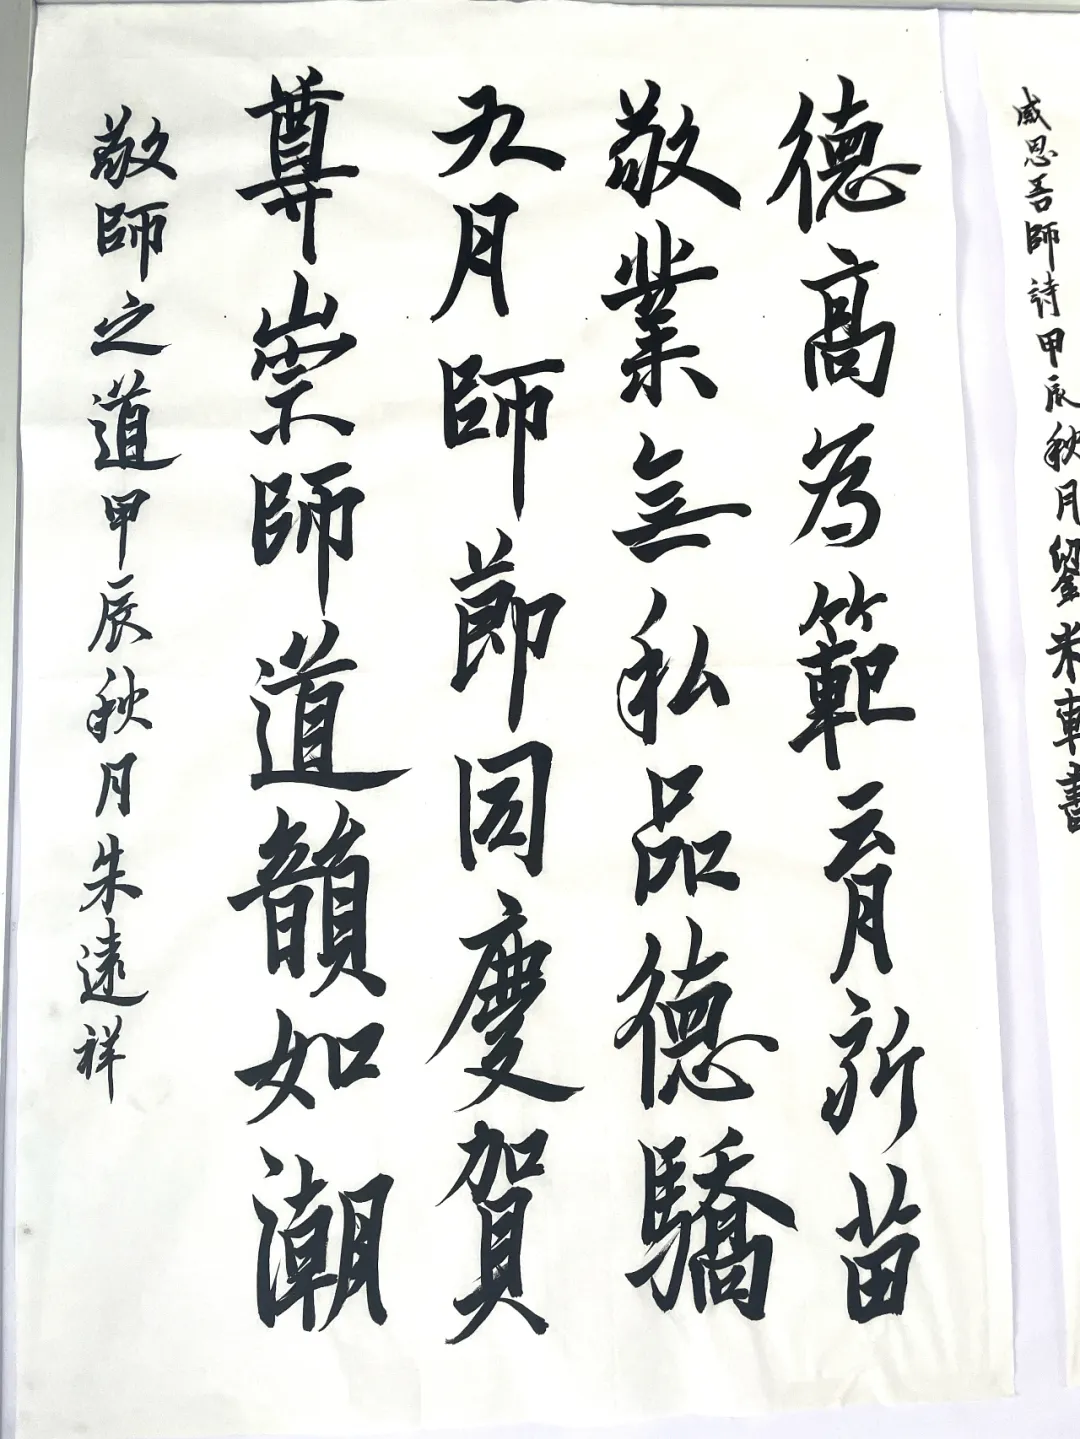 德高為範育新苗
敬業無私品德驕
九月師節同慶賀
尊崇師道韻如潮
敬師之道甲辰秋月朱遠祥
感恩吾師詩甲辰秋月劉米車書